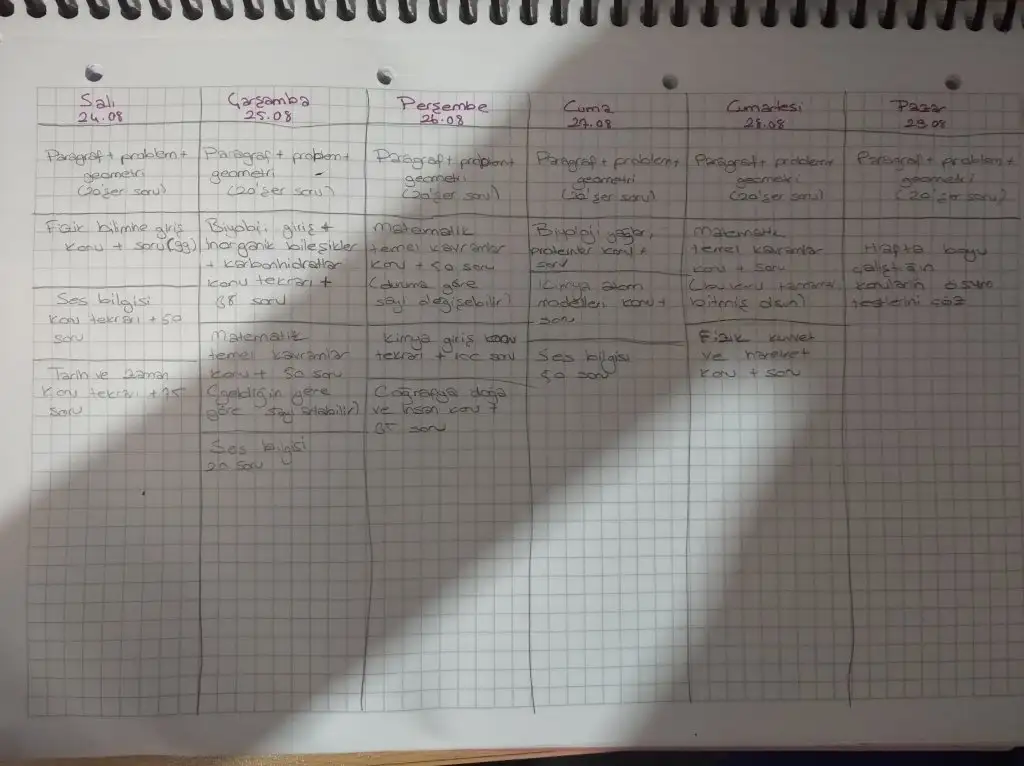 Salı
24.08
Paragraf + problem +
geometri
(20'şer soru)
Fizik bilimine giriş
konu + soru (99)
Ses bilgisi
konu tekrarı + 50
soru
Tarih ve zaman
Konu tekrarı + 75
soru
Çarşamba
25.08
Paragraf + problem +
geometri
(20'şer soru)
Biyoloji giriş +
inorganik bileşikler
+ karbonhidratlar
konu tekrarı +
38 soru
Matematik
temel kavramlar
konu + 50 soru
(geldiğin yere
göre sayı artabilir)
Ses bilgisi
20 soru
Perşembe
26.08
Paragraf + problem +
geometri
(20'şer soru)
Matematik
temel kavramlar
konu + 50 soru
(duruma göre
sayı değişebilir)
Kimya giriş konu
tekrarı + 100 soru
Coğrafya doğa
ve insan konu +
35 soru
Cuma
27.08
Paragraf + problem +
geometri
(20'şer soru)
Biyoloji yağlar,
proteinler konu +
soru
Kimya atom
modelleri konu +
soru
Ses bilgisi
50 soru
Cumartesi
28.08
Paragraf + problem +
geometri
(20'şer soru)
Matematik
temel kavramlar
konu + soru
(bu konu tamamen
bitmiş olsun)
Fizik kuvvet
ve hareket
konu + soru
Pazar
29.08
Paragraf + problem +
geometri
(20'şer soru)
Hafta boyu
çalıştığın
konuların ösym
testlerini çöz